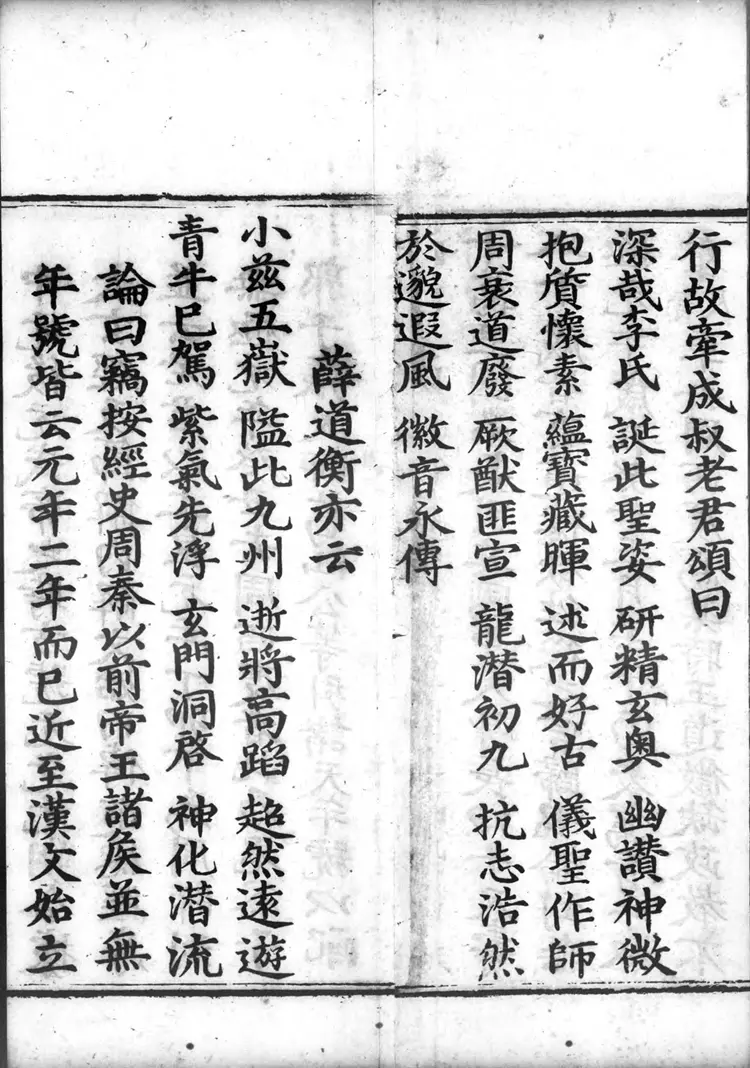 行故牽成叔老君頌曰
深哉李氏 誕此聖姿 研精玄奧 幽讚神微
抱質懷素 蘊寶藏暉 述而好古 儀聖作師
周衰道廢 厥猷匪宣 龍潛初九 抗志浩然
於邈遐風 徽音永傳
薛道衡亦云
小兹五嶽 隘此九州 逝將高蹈 超然遠遊
青牛已駕 紫氣先浮 玄門洞啓 神化潛流
論曰竊按經史周秦以前帝王諸矦並無
年號皆云元年二年而已近至漢文始立